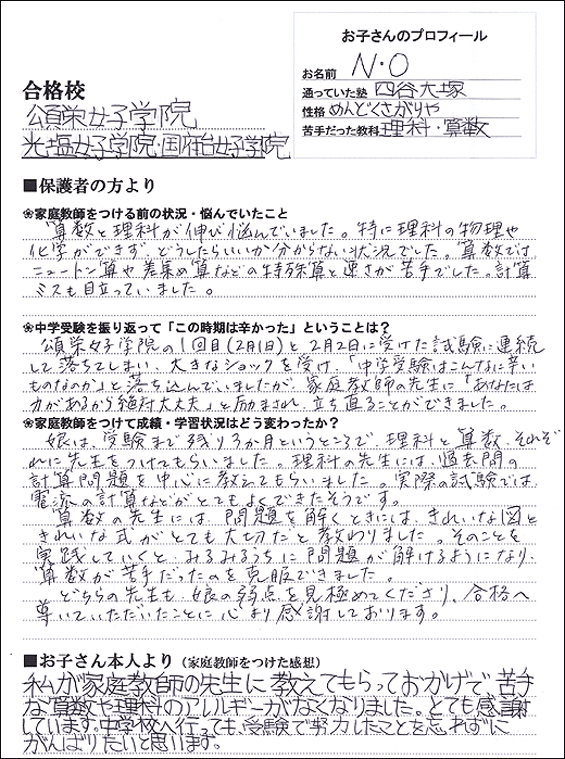 お子さんのプロフィール
お名前 N・O
通っていた塾 四谷大塚
性格 めんどくさがりや
苦手だった教科 理科・算数
合格校
頌栄女子学院
光塩女子学院・国府台女子学院
■保護者の方より
❀家庭教師をつける前の状況・悩んでいたこと
算数と理科が伸び悩んでいました。特に理科の物理や
化学ができず、どうしたらいいか分からない状況でした。算数では、
ニュートン算や差集め算などの特殊算と速さが苦手でした。計算
ミスも目立っていました。
❀中学受験を振り返って「この時期は辛かった」ということは？
頌栄女子学院の1回目(2月1日)と2月2日に受けた試験に連続
して落ちてしまい、大きなショックを受け、「中学受験はこんなに辛い
ものなのか」と落ち込んでいましたが、家庭教師の先生に「あなたには
力があるから絶対大丈夫」と励まされ、立ち直ることができました。
❀家庭教師をつけて成績・学習状況はどう変わったか？
娘は、受験まで残り3か月というところで、理科と算数、それぞ
れに先生をつけてもらいました。理科の先生には、過去問の
計算問題を中心に教えてもらいました。実際の試験では、
電流の計算などがとてもよくできたそうです。
算数の先生には、問題を解くときには、きれいな図と
きれいな式がとても大切だと教わりました。そのことを
実践していくと、みるみるうちに問題が解けるようになり、
算数が苦手だったのを克服できました。
どちらの先生も、娘の弱点を見極めてくださり、合格へ
導いていただいたことに心より感謝しております。
■お子さん本人より（家庭教師をつけた感想）
私が家庭教師の先生に教えてもらっておかげで、苦手
な算数や理科のアレルギーがなくなりました。とても感謝
しています。中学校へ行っても、受験で努力したことを忘れずに
がんばりたいと思います。